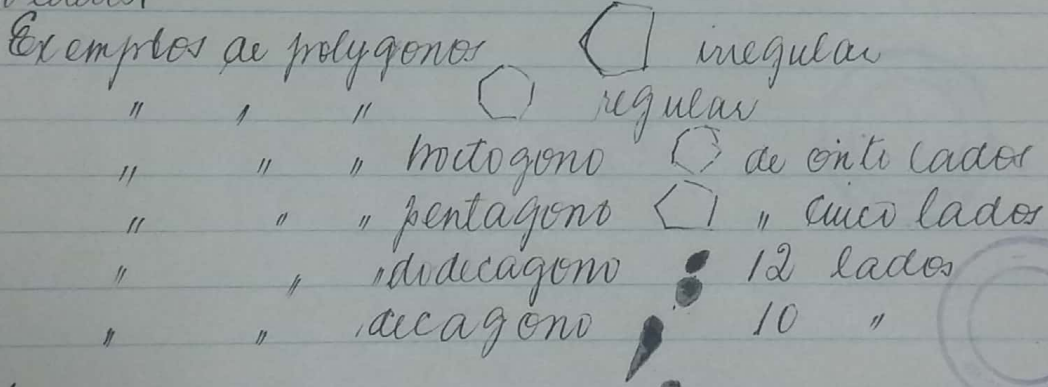 Exemplos de polygonos irregular
" " " regular
" " " hoctogono de oito lados
" " " pentagono " cinco lados
" " " dodecagono 12 lados
" " decagono 10 "